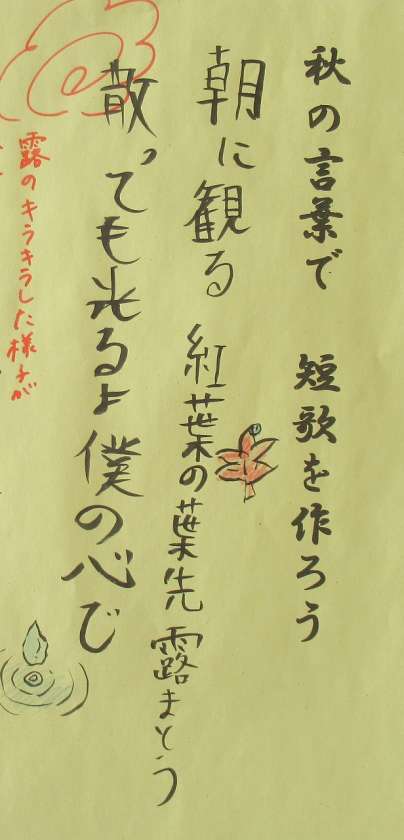 秋の言葉で 短歌を作ろう
朝に観る 紅葉の葉先 露まとう
散っても光るよ 僕の心で
露のキラキラした様子が